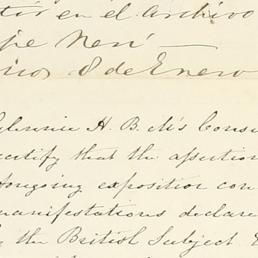 en el archivo
8 de Enero
H. B. M's Consu
certify that the assertion
foregoing exposition con
manifestations declare
by the British Subject